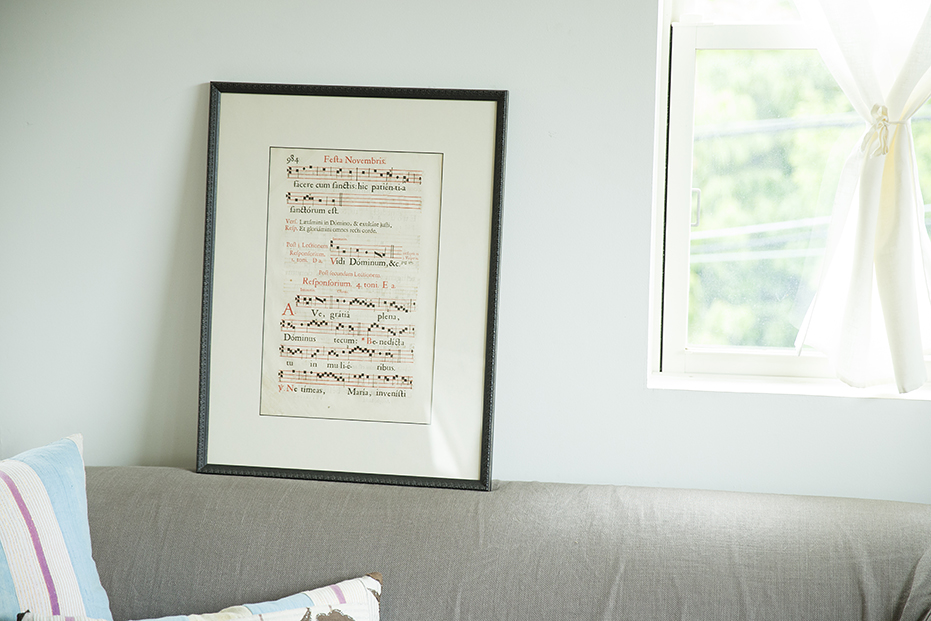 984 Festa Novembris
facere cum sanctis: hic patientia
sanctórum est.
Vers. Lætámini in Dómino, & exultáte justi,
Resp. Et gloriámini omnes recti corde.
Post 3. Lectionem
Responsorium.
Vidi Dóminum, &c.
Post secundam Lectionem.
Responsorium. 4. toni. E 2.
A Ve, grátiâ plena,
Dóminus tecum: * Benedícta
tu in muliéribus.
℣ Ne tímeas, María, invenísti